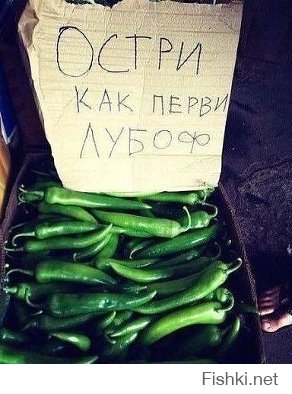 ОСТРИ
КАК ПЕРВИ
ЛУБОФ
Fishki.net